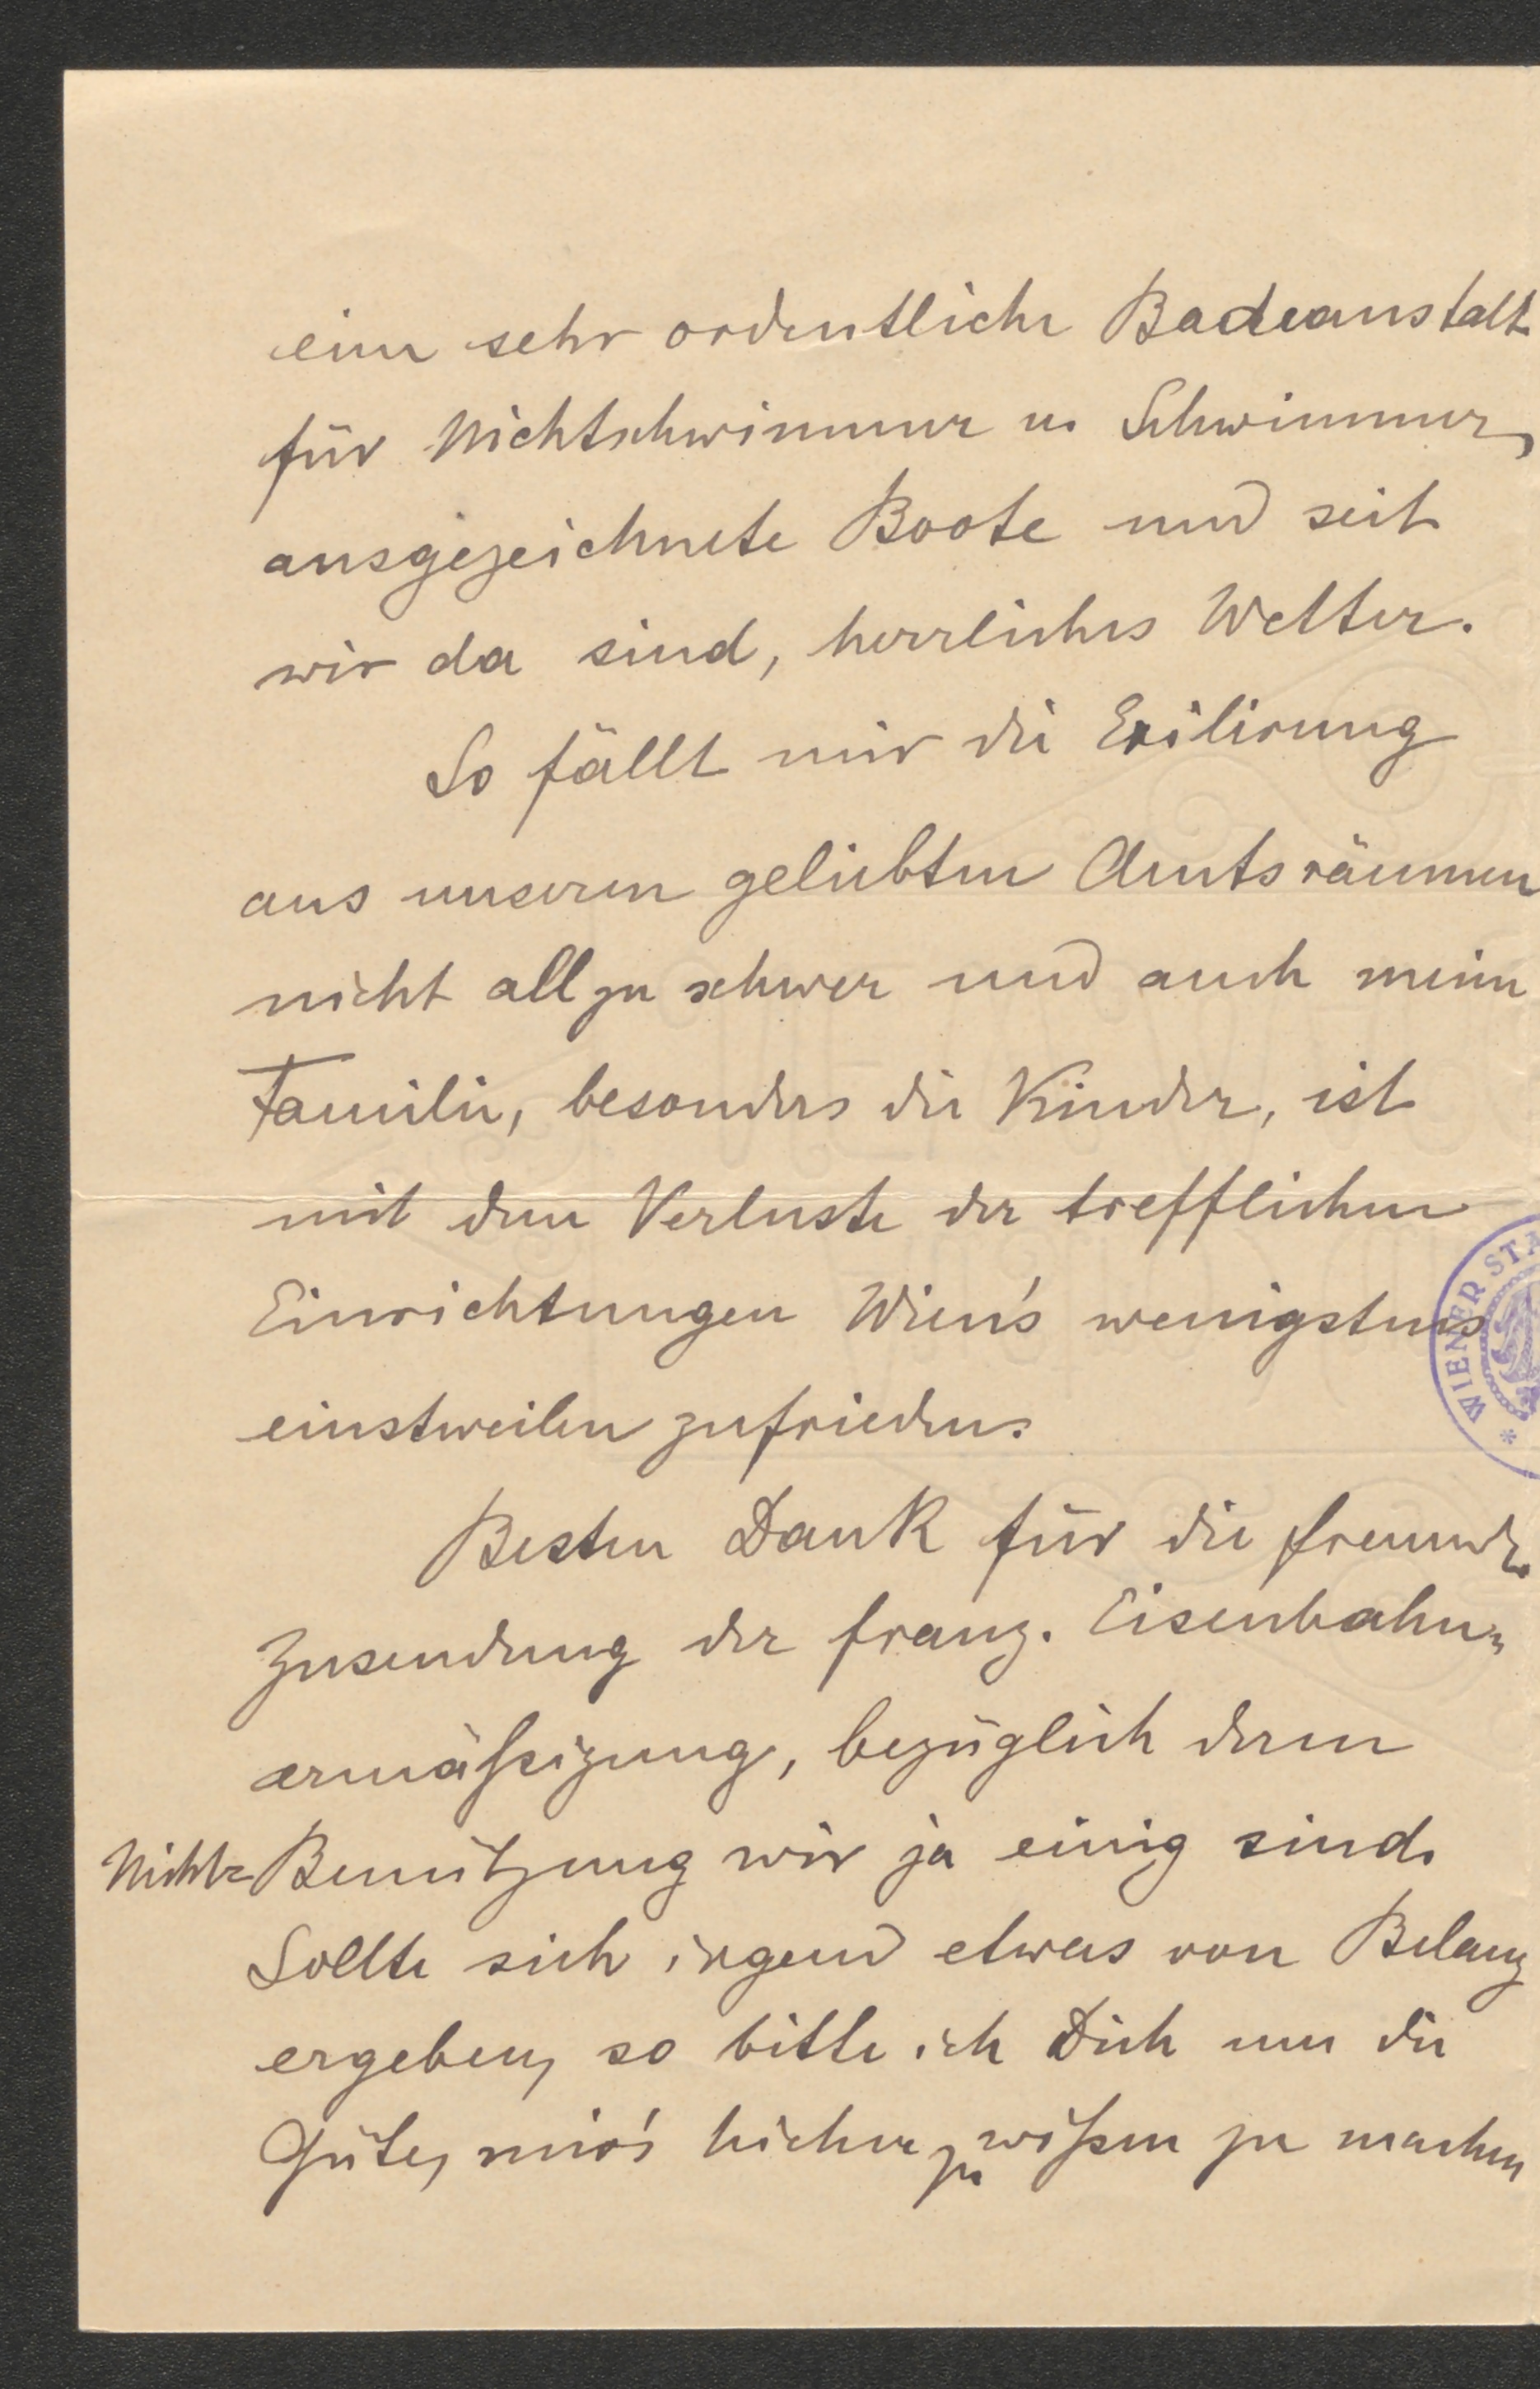 eine sehr ordentliche Badeanstalt
für Nichtschwimmer u. Schwimmer,
ausgezeichnete Boote und seit
wir da sind, herrliches Wetter.
So fällt mir die Exilirung
aus unseren geliebten Amtsräumen
nicht allzu schwer und auch meine
Familie, besonders die Kinder, ist
mit dem Verluste der trefflichen
Einrichtungen Wien's wenigstens
einstweilen zufrieden.
Besten Dank für die freundl.
Zusendung der franz. Eisenbahn-
ermäßigung, bezüglich deren
Nicht-Benützung wir ja einig sind.
Sollte sich irgend etwas von Belang
ergeben, so bitte ich Dich um die
Güte, mir's hieher zu wißen zu machen
WIENER STA